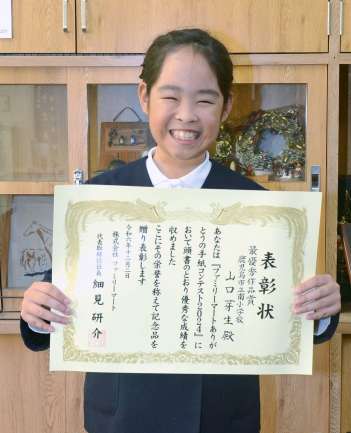 表彰状
最優秀作品賞
鹿児島市立南小学校
山口芽生殿
あなたは『ファミリーマートありが
とうの手紙コンテスト2024』に
おいて頭書のとおり優秀な成績を
収めました
ここにその栄誉を称えて記念品を
贈り表彰します
令和六年十二月二日
株式会社ファミリーマート
代表取締役社長
細見研介